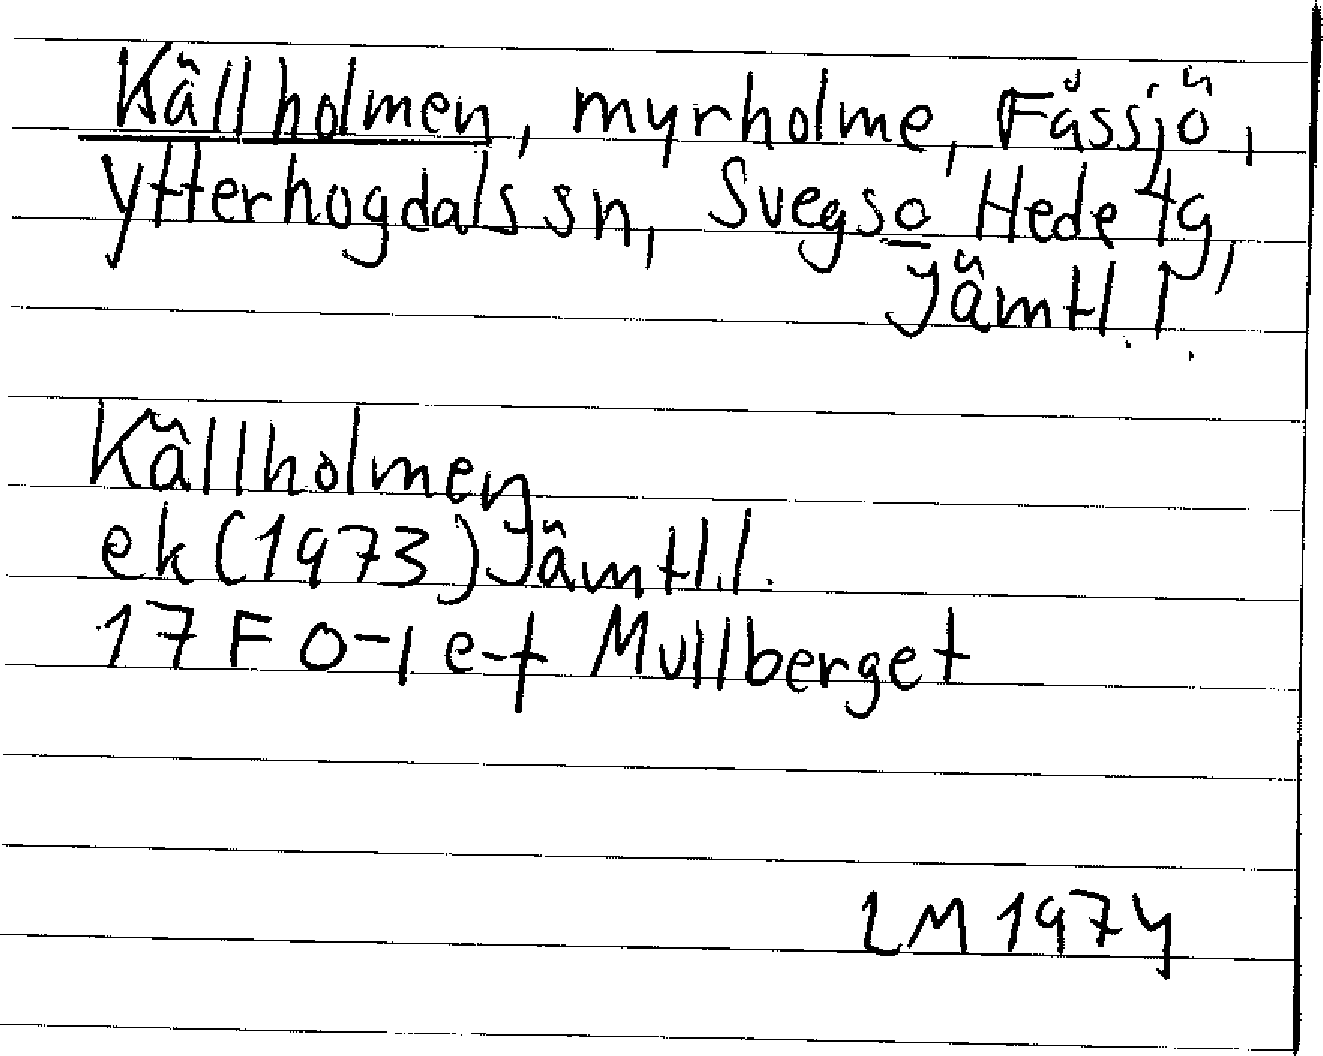 Källholmen, myrholme, Fåssjö,
Ytterhogdals sn, Svegs o Hede tg,
Jämtl. l.
Källholmen
ek (1973) Jämtl. l.
17 F 0-1 e-f Mullberget
LM 1974